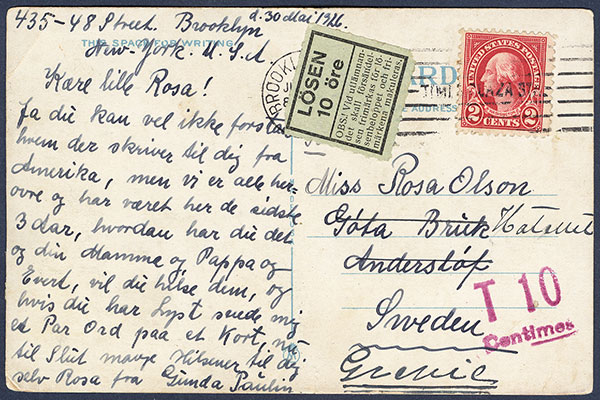 435-48 Street. Brooklyn
d. 30 Mai 1926.
THIS SPACE FOR WRITING
New-York. U.S.A
Kære lille Rosa!
Ja du kan vel ikke forstaa
hvem der skriver til dig fra
Amerika, men vi er alle her-
ovre og har været her de sidste
3 dar, hvordan har du det
og din Mamma og Pappa og
Evert, vil du hilse dem, og
hvis du har Lyst sende mig
et Par Ord paa et Kort, nu
til Slut mange Hilsener til dig
selv Rosa fra Gunda Paulin
BROOK
LÖSEN
10 öre
OBS! Vid aflämnan-
det skall försändel-
sen utmärkas för lö-
senbeloppet och fri-
märkena makuleras.
CARD
ADDRESS
UNITED STATES POSTAGE
2 CENTS 2
Miss Rosa Olson
Göta Bruk
Anderslöf
Sweden
T 10
Centimes